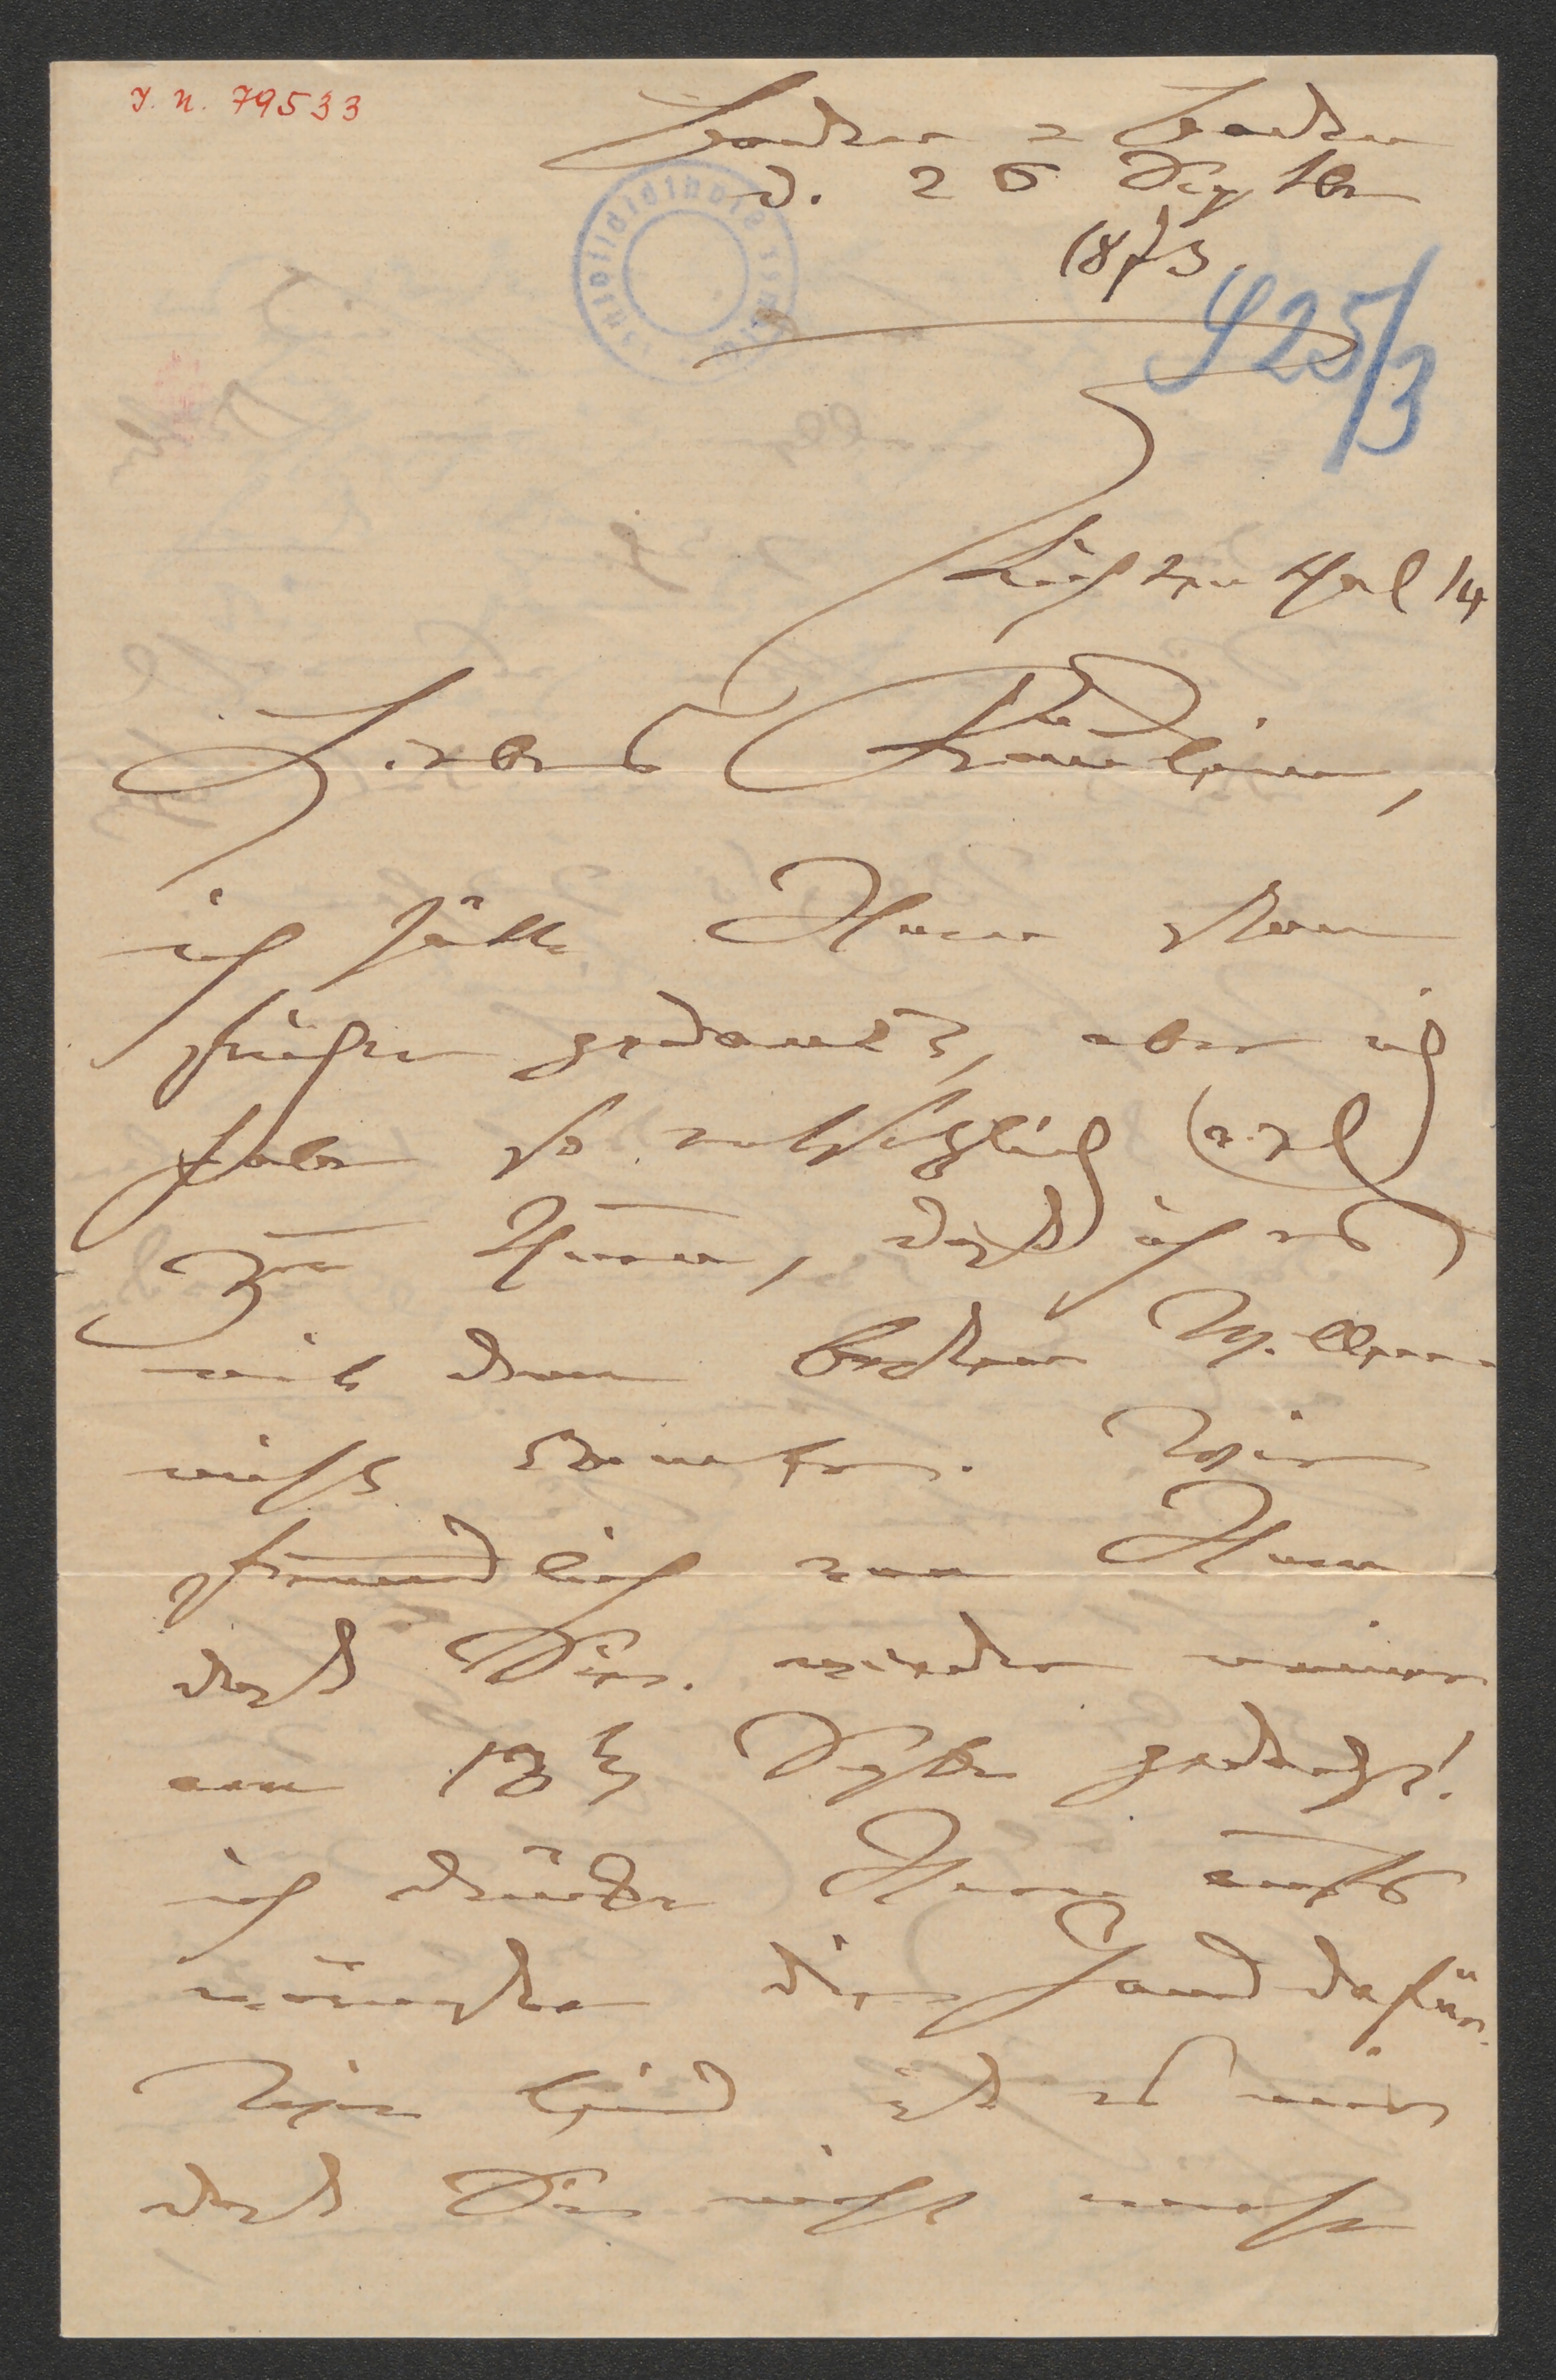 J. N. 79533
Baden = Baden
d. 26 Septbr
1873.
425/3
Lichtenthal 14
Liebes Fräulein,
ich hätte Ihnen schon
früher gedankt, aber ich
habe so entsetzlich viel
zu thun, daß ich es
mit dem besten Willen
nicht konnte. Wie
freundlich von Ihnen
daß Sie wieder meiner
am 13t Septbr gedacht!
ich drücke Ihnen aufs
wärmste die Hand dafür.
Wie leid ist es mir
daß Sie nicht mehr